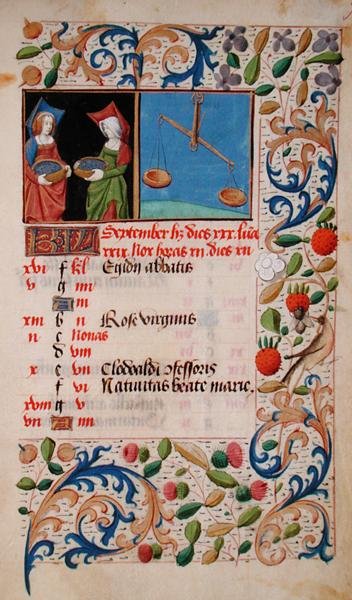 September hʒ dies xxx. luā
xxix. Nox horas xii. dies xii
xvi f kl Egidii abbatis
v g iiii
iii
xiii b ii Rose virginis
ii c nonas
d viii
x e vii Clodoaldi ɔfessoris
f vi Nativitas beate marie.
xviii g v
vii iiii